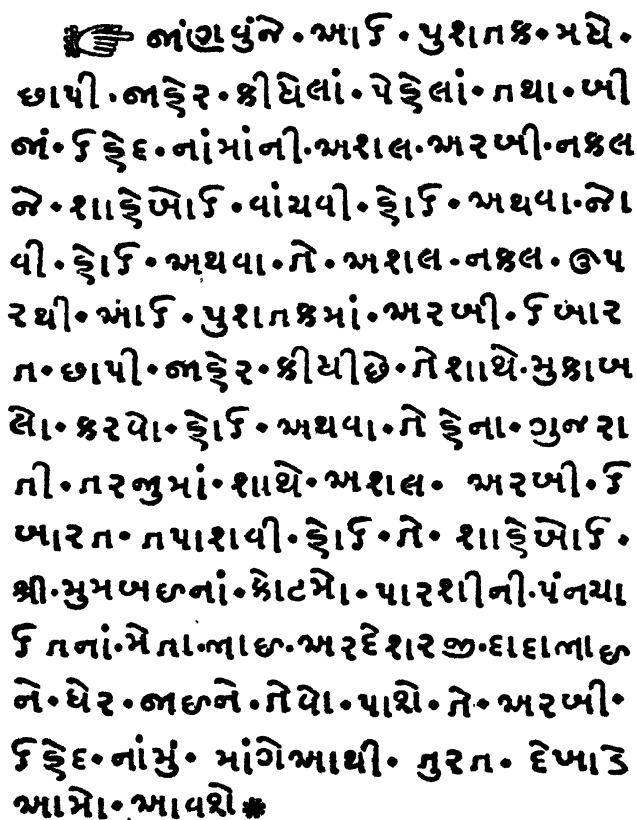 ☞ જાંણવુંને • આઈ • પુશતક • મધે •
છાપી • જાહેર • કીધેલાં • પેહેલાં • તથા • બી
જાં • ઈહેદ • નાંમાંની • અશલ • અરબી • નકલ
જે • શાહેબોઈ • વાંચવી • હોઈ • અથવા • જો
વી • હોઈ • અથવા • તે • અશલ • નકલ • ઊપ
રથી • આંઈ • પુશતકમાં • અરબી • ઈબાર
ત • છાપી • જાહેર • કીધીછે • તે શાથે • મુકાબ
લો • કરવો • હોઈ • અથવા • તે હેના • ગુજરા
તી • તરજુમાં • શાથે • અશલ • અરબી • ઈ
બારત • તપાશવી • હોઈ • તે • શાહેબોઈ •
શ્રી • મુમબઇનાં • કોટમો • પારશીની • પંનચા
ઈતનાં • મેતા • ભાઇ • અરદેશરજી • દાદાભાઇ
ને • ઘેર • જાઇને • તેવો • પાશે • તે • અરબી •
ઈહેદ • નાંમું • માંગેઆથી • તુરત • દેખાડે
આમો • આવશે✱